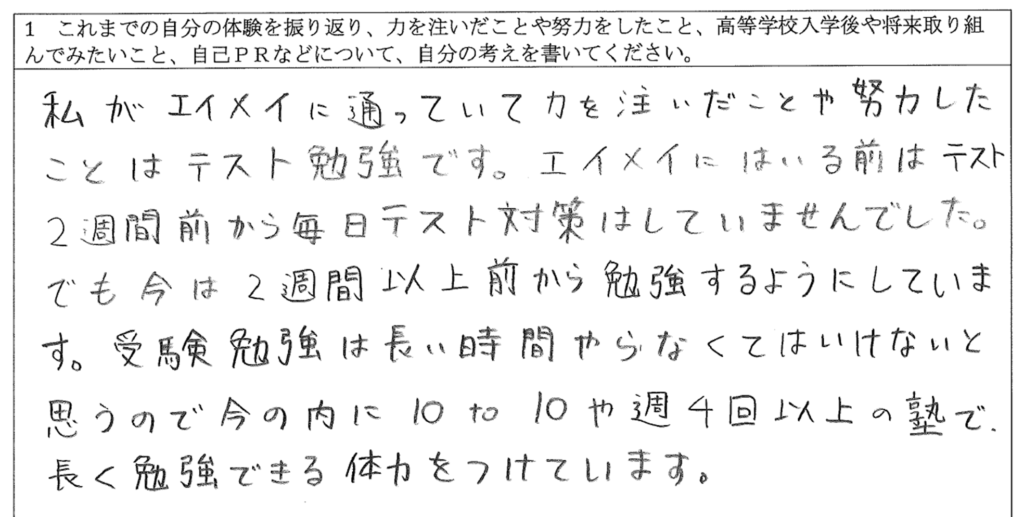 1 これまでの自分の体験を振り返り、力を注いだことや努力をしたこと、高等学校入学後や将来取り組
んでみたいこと、自己ＰＲなどについて、自分の考えを書いてください。
私がエイメイに通っていて力を注いだことや努力した
ことはテスト勉強です。エイメイにはいる前はテスト
2週間前から毎日テスト対策はしていませんでした。
でも今は2週間以上前から勉強するようにしていま
す。受験勉強は長い時間やらなくてはいけないと
思うので今の内に10 to 10や週4回以上の塾で、
長く勉強できる体力をつけています。